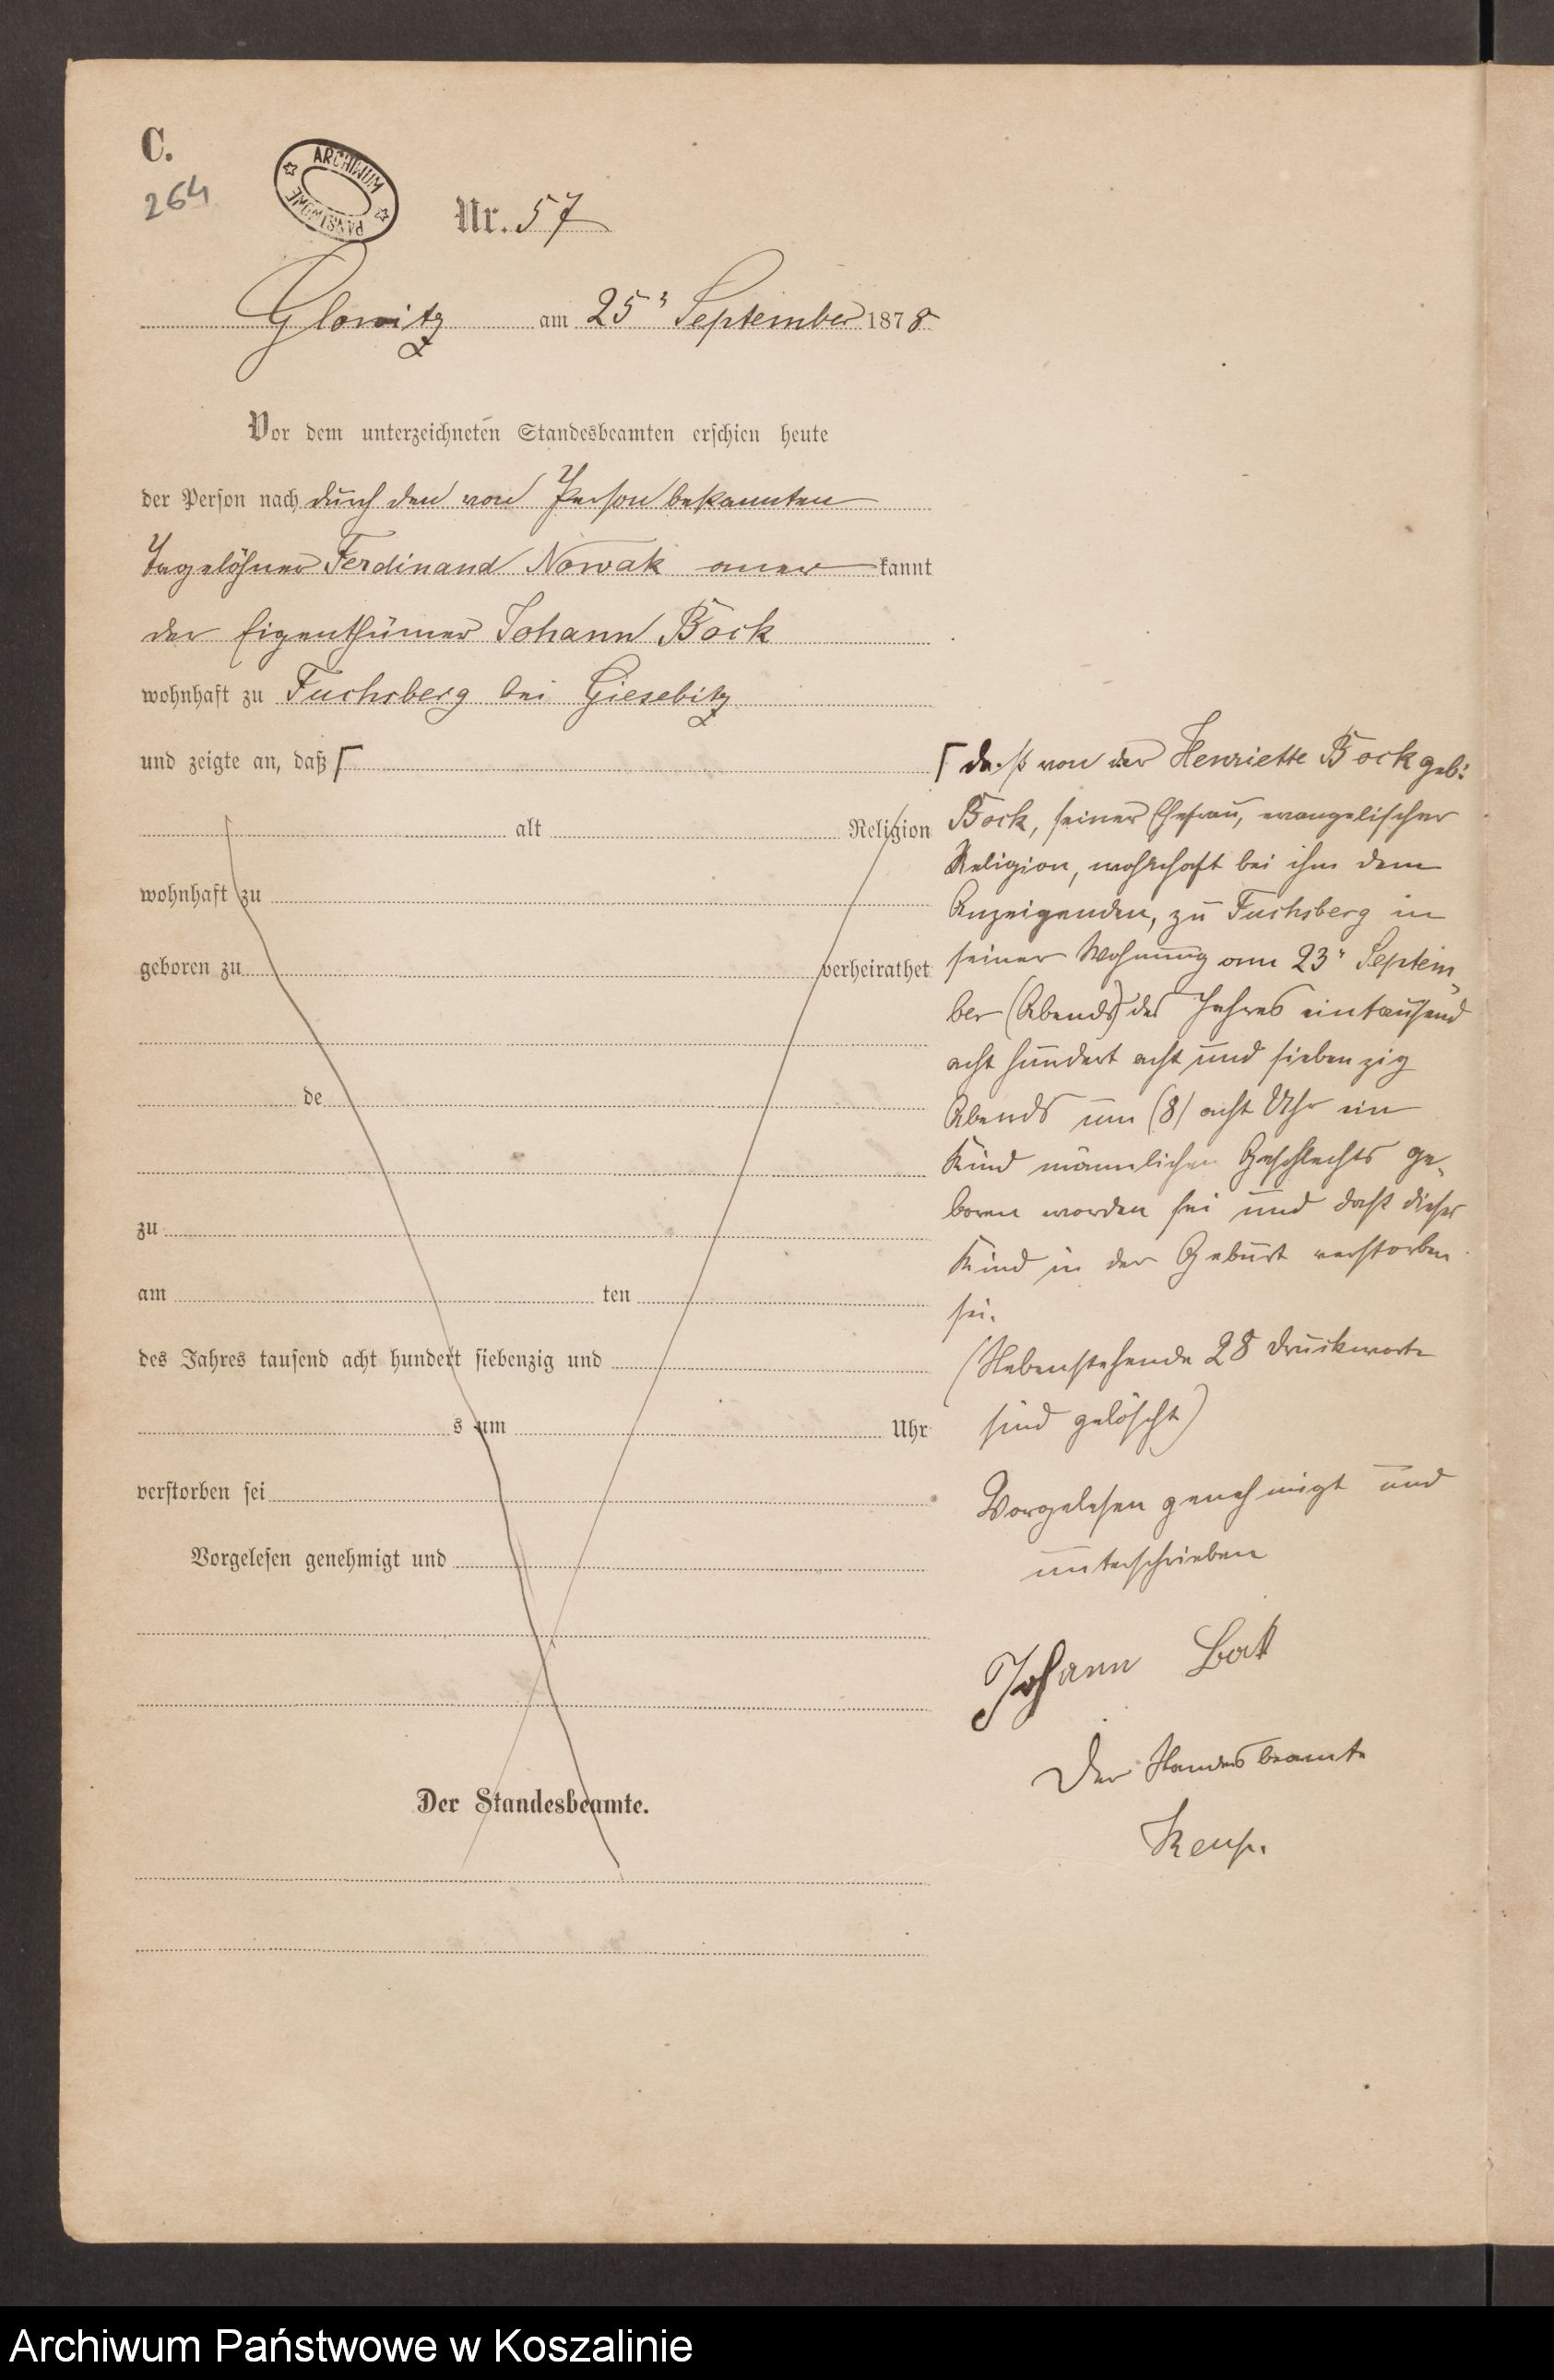 C.
264
ARCHIWUM PAŃSTWOWE
Nr. 57
Glowitz am 25ⁿ September 1878
Vor dem unterzeichneten Standesbeamten erschien heute
der Person nach durch den von Person bekannten
Tagelöhner Ferdinand Nowak aner kannt
der Eigenthümer Johann Bock
wohnhaft zu Fuchsberg bei Giesebitz
und zeigte an, daß ⌈
alt Religion
wohnhaft zu
geboren zu verheirathet
de
zu
am ten
des Jahres tausend acht hundert siebenzig und
s um Uhr
verstorben sei
Vorgelesen genehmigt und
Der Standesbeamte.
⌈ daß von der Henriette Bock geb:
Bock, seiner Ehefrau, evangelischer
Religion, wohnhaft bei ihm dem
Anzeigenden, zu Fuchsberg in
seiner Wohnung am 23ⁿ Septem„
ber (Abends) des Jahres eintausend
acht hundert acht und siebenzig
Abends um (8) acht Uhr ein
Kind männlichen Geschlechts ge„
boren worden sei und daß dieses
Kind in der Geburt verstorben
sei.
(Nebenstehende 28 Druckworte
sind gelöscht)
Vorgelesen genehmigt und
unterschrieben
Johann Bock
Der Standesbeamte
Archiwum Państwowe w Koszalinie